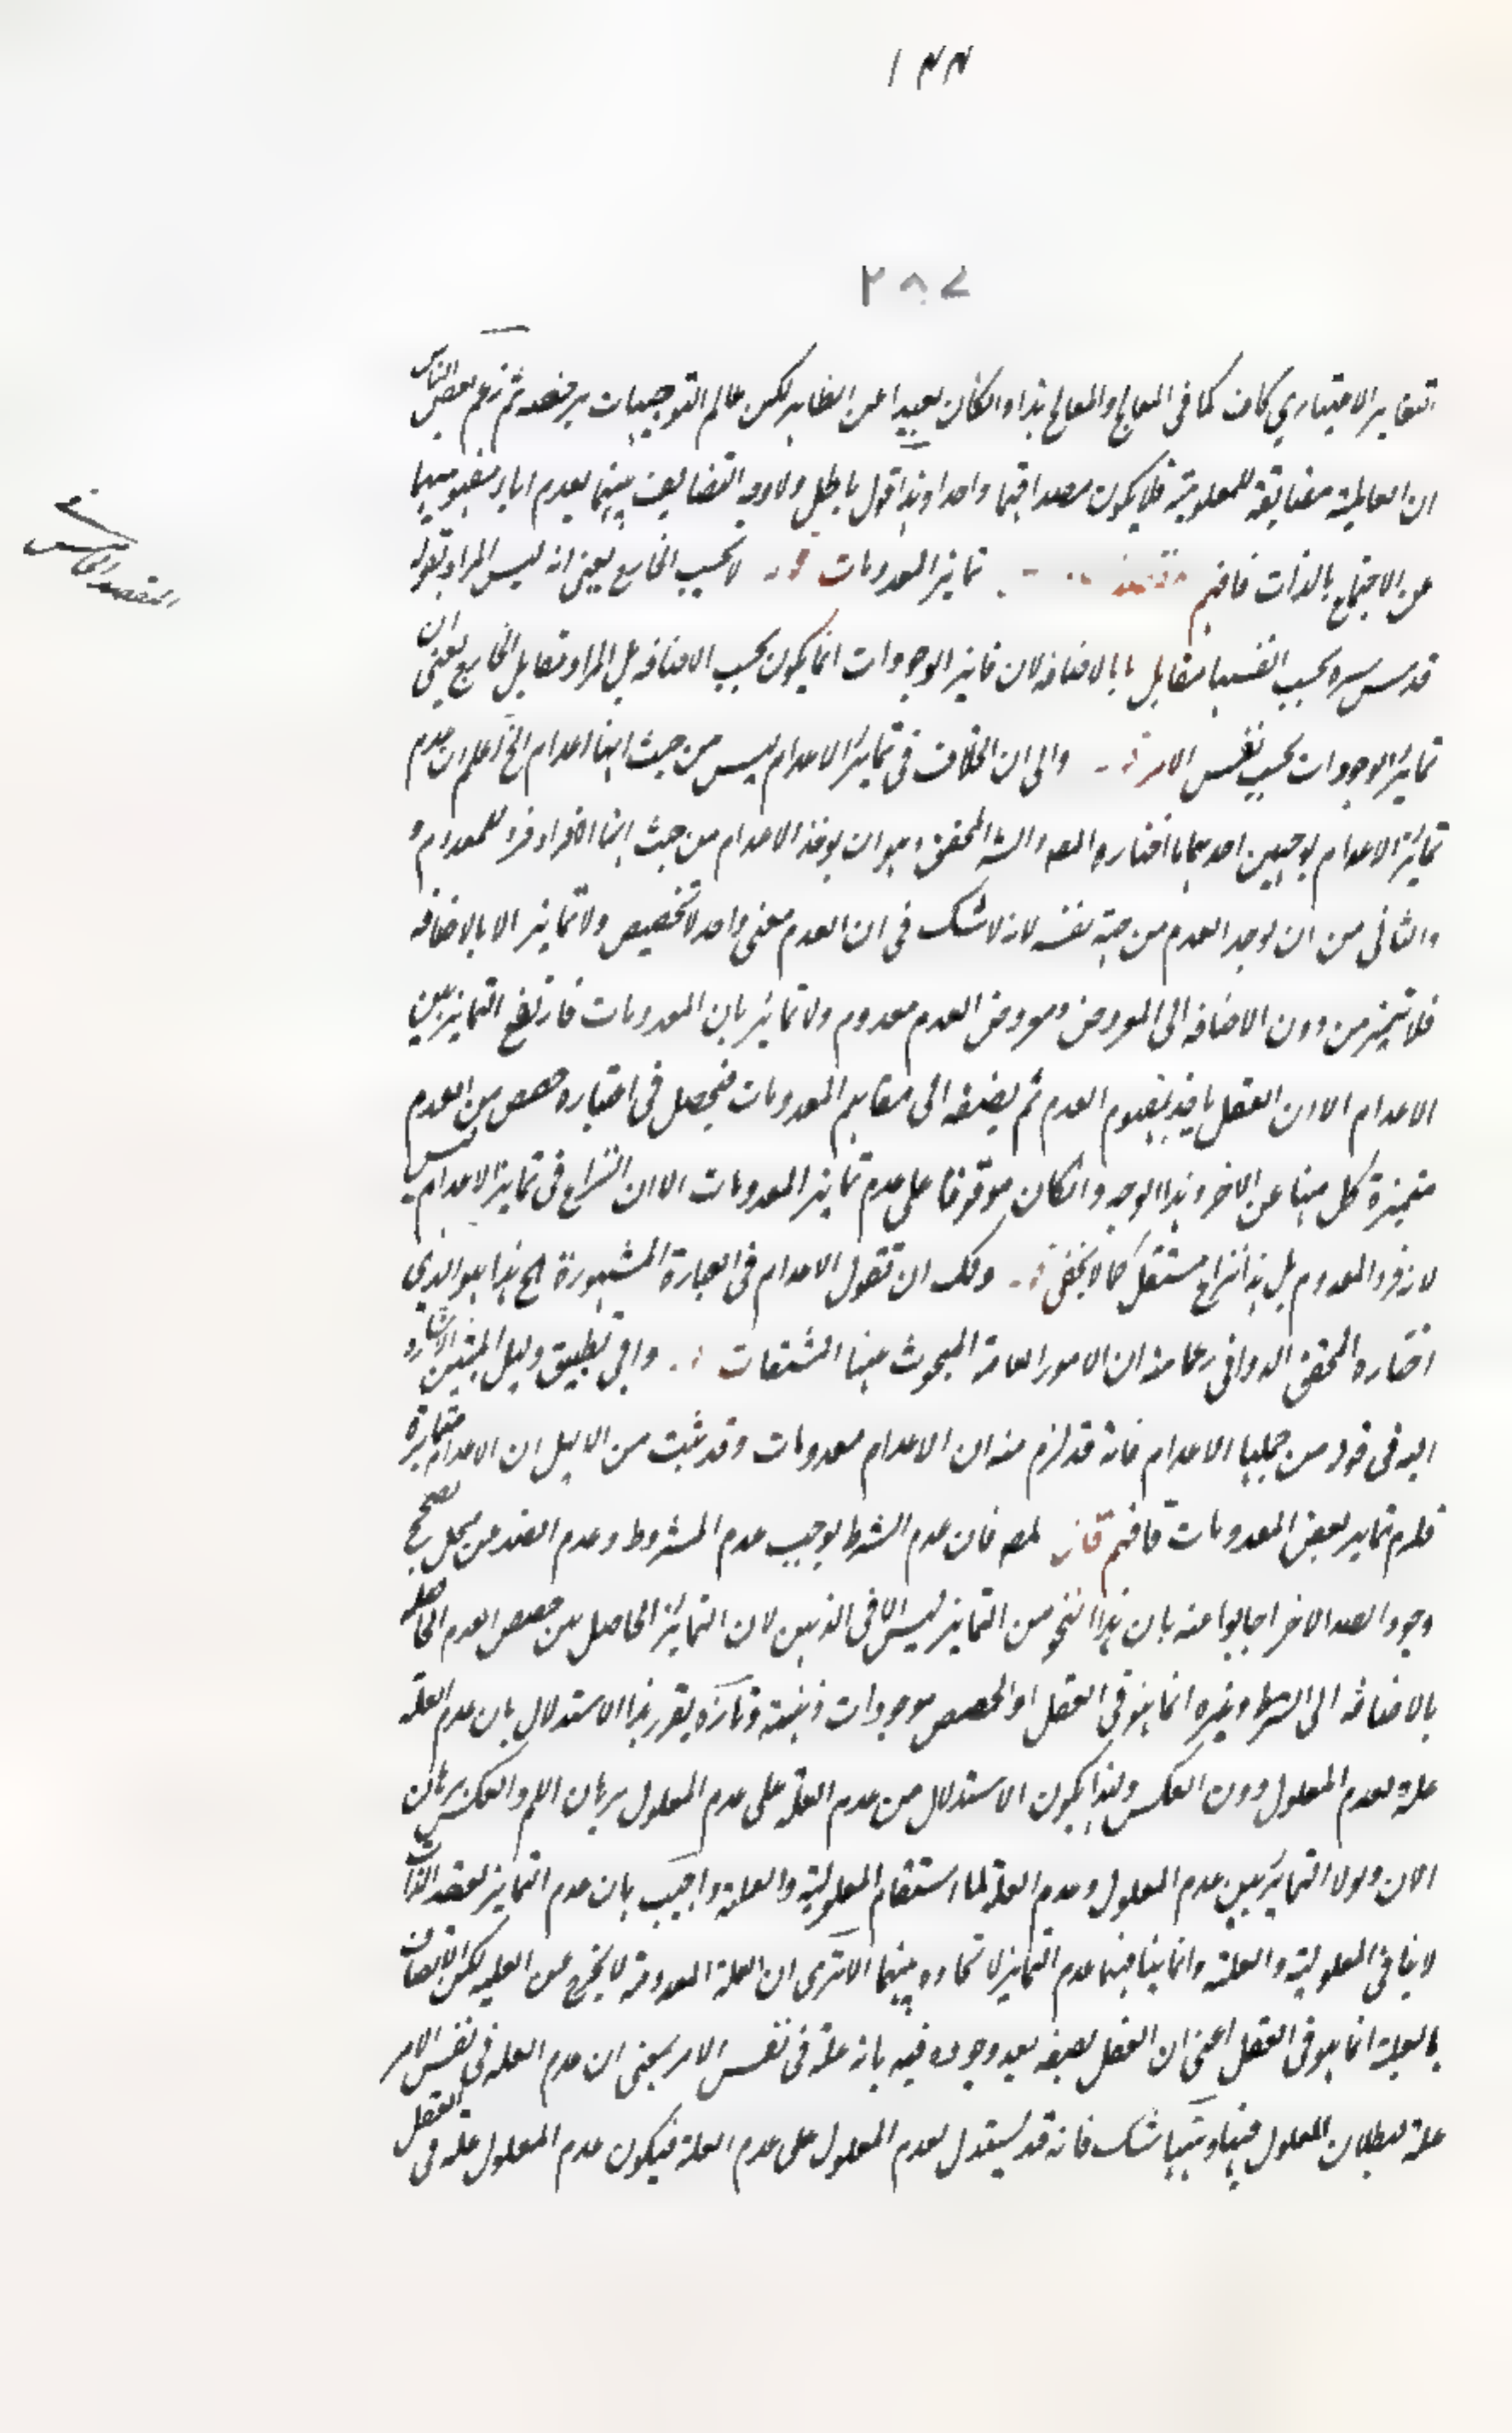 ١٤٤
٢٨٧
التغاير الاعتباري كاف كما في المعالج والمعالج هذا وان كان بعيدا عن الظاهر لكن عالم التوجيهات يرخصه ثم زعم بعض الناس
ان العالمية مضايفة للمعلومية فلا يكون مصداقهما واحدا وهذا قول باطل ولا وجه التضايف بينهما لعدم اباء مفهوميهما
عن الاجتماع بالذات فافهم تمايز المعدومات قوله لا بحسب الخارج يعني انه ليس المراد بقوله
المقصد الخامس
قدس سره بحسب انفسها مقابل بالاضافة لان تمايز الوجودات انما يكون بحسب الاضافة بل المراد مقابل الخارج يعني ان
تمايز الوجودات بحسب نفس الامر قوله والى ان الخلاف في تمايز الاعدام ليس من حيث انها اعدام الخ اعلم ان عدم
تمايز الاعدام بوجهين احدهما ما اختاره المصه والشه المحقق وهو ان يوخذ الاعدام من حيث انها افراد فرد للمعدوم و
والثاني من ان يوجد العدم من جهة نفسه لانه لا شك في ان العدم معنى واحد لا تخصيص ولا تمايز الا بالاضافة
فلا تميز من دون الاضافة الى المعروض ومعروض العدم معدوم ولا تمايز بان المعدومات فارتفع التمايز بين
الاعدام الا ان العقل ياخذ بمفهوم العدم ثم يضيفه الى مفاهيم المعدومات فيحصل في اعتباره حصص من العدم
متميزة كل منها عن الاخر وهذا الوجه وان كان موقوفا على عدم تمايز المعدومات الا ان النزاع في تمايز الاعدام ليس
لانه فرد المعدوم بل هذا نزاع مستقل كما لا يخفى قوله ولك ان تقول الاعدام في العبارة المشهورة الخ هذا هو الذي
اختاره المحقق الدواني زعما منه ان الامور العامة المبحوث عنها المشتقات قوله وافى تطبيق دليل المثبتين الاشارة
اليه في قوله من جملتها الاعدام فانه قد لزم منه ان الاعدام معدومات وقد ثبت من الدليل ان الاعدام متمايزة
فلزم تمايز بعض المعدومات فافهم قال المصه فان عدم الشرط يوجب عدم المشروط وعدم الضد عن محل يصحح
وجود الضد الاخر اجابوا عنه بان هذا النحو من التمايز ليس الا في الذهن لان التمايز الحاصل بين حصص العدم الحاصلة
بالاضافة الى الشرط وغيره انما هو في العقل او الحصص موجودات ذهنية وتارة يقرر هذا الاستدلال بان عدم العلة
علة لعدم المعلول دون العكس ولهذا يكون الاستدلال من عدم العلة على عدم المعلول برهان اللم والعكس برهان
الان ولولا التمايز بين عدم المعلول وعدم العلة لما استقام المعلولية والعلية واجيب بان عدم التمايز لفقد الذات
لا ينافي المعلولية والعلية وانما ينافيهما عدم التمايز لاتحاده بينهما الا ترى ان العلة المعدومة لا يخرج عن العلية لكن الاتصاف
بالعلية انما هو في العقل اعني ان العقل يصفه بعد وجوده فيه بانه علة في نفس الامر يعني ان عدم العلة في نفس الامر
علة لبطلان المعلول فيها وههنا شك فانه قد يستدل لعدم المعلول على عدم العلة فيكون عدم المعلول علة في العقل